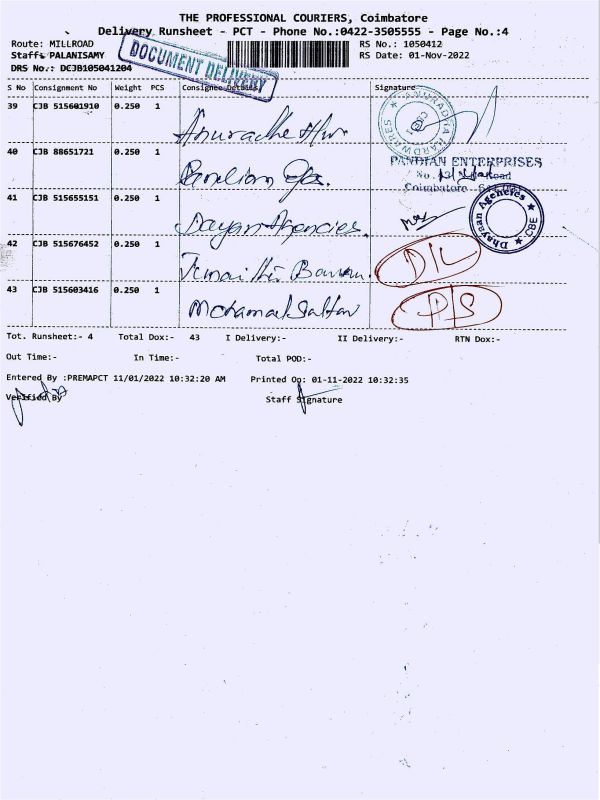 THE PROFESSIONAL COURIERS, Coimbatore
Delivery Runsheet - PCT - Phone No.:0422-3505555 - Page No.:4
Route: MILLROAD RS No.: 1050412
Staff: PALANISAMY RS Date: 01-Nov-2022
DRS No.: DCJB105041204
DOCUMENT DELIVERY
S No Consignment No Weight PCS Consignee Details Signature
39 CJB 515601910 0.250 1 Anuradha H/w
ANURADHA HARDWARES
40 CJB 88651721 0.250 1 Pandian
PANDIAN ENTERPRISES
Coimbatore
41 CJB 515655151 0.250 1 Dayan Agencies.
Dhayaan Agencies CBE
42 CJB 515676452 0.250 1 D/L
43 CJB 515603416 0.250 1 P/S
Tot. Runsheet:- 4 Total Dox:- 43 I Delivery:- II Delivery:- RTN Dox:-
Out Time:- In Time:- Total POD:-
Entered By :PREMAPCT 11/01/2022 10:32:20 AM Printed On: 01-11-2022 10:32:35
Verified By Staff Signature